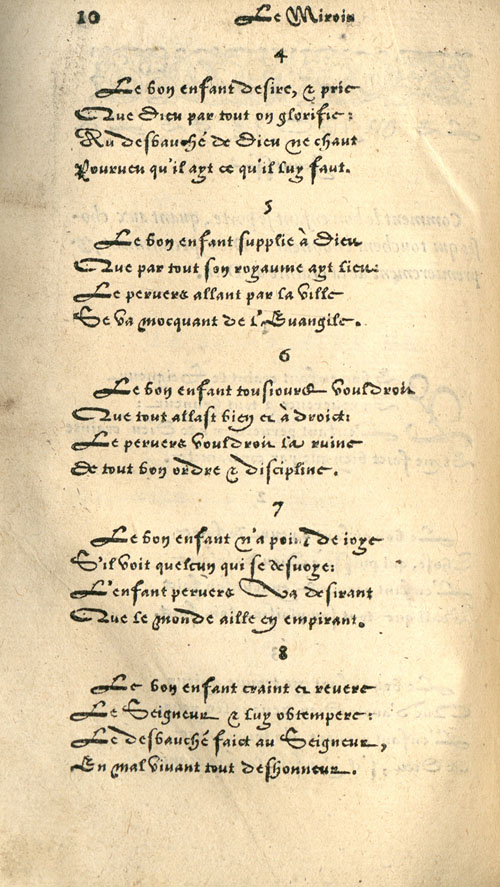 10 Le Miroir
4
Le bon enfant desire, & prie
Que Dieu par tout on glorifie:
Au desbauché de Dieu ne chaut
Pourveu qu'il ayt ce qu'il luy faut.
5
Le bon enfant supplie à Dieu
Que par tout son royaume ayt lieu:
Le pervers allant par la ville
Se va mocquant de l'Evangile.
6
Le bon enfant tousiours vouldroit
Que tout allast bien & à droict:
Le pervers vouldroit la ruine
De tout bon ordre & discipline.
7
Le bon enfant n'a point de ioye
S'il voit quelcun qui se desvoye:
L'enfant pervers Va desirant
Que le monde aille en empirant.
8
Le bon enfant craint & revere
Le Seigneur & luy obtempere:
Le desbauché faict au Seigneur,
En mal vivant tout deshonneur.